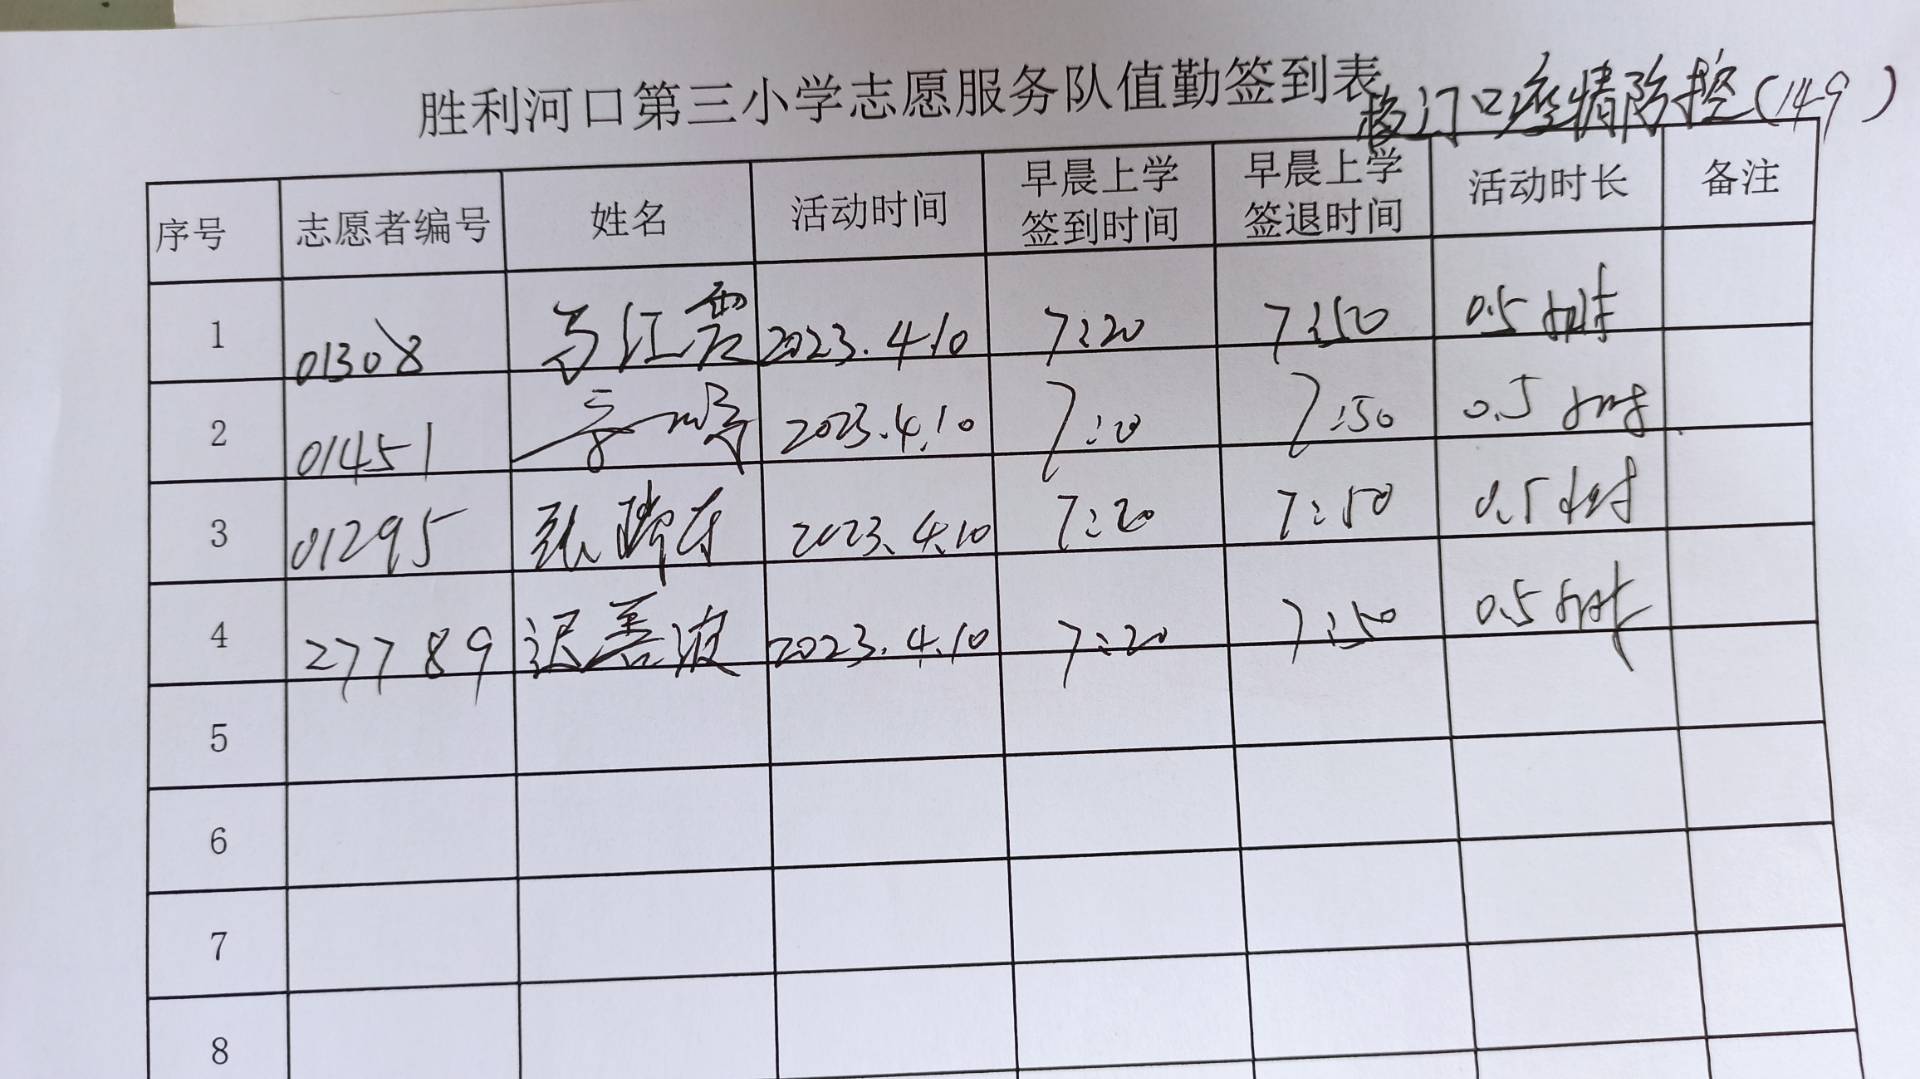 胜利河口第三小学志愿服务队值勤签到表
校门口疫情防控(149)
序号 志愿者编号 姓名 活动时间 早晨上学签到时间 早晨上学签退时间 活动时长 备注
1 01308 马江震 2023.4.10 7:20 7:50 0.5小时
2 01451 2023.4.10 7:20 7:50 0.5小时
3 01295 张瑞存 2023.4.10 7:20 7:50 0.5小时
4 27789 迟善波 2023.4.10 7:20 7:50 0.5小时
5
6
7
8